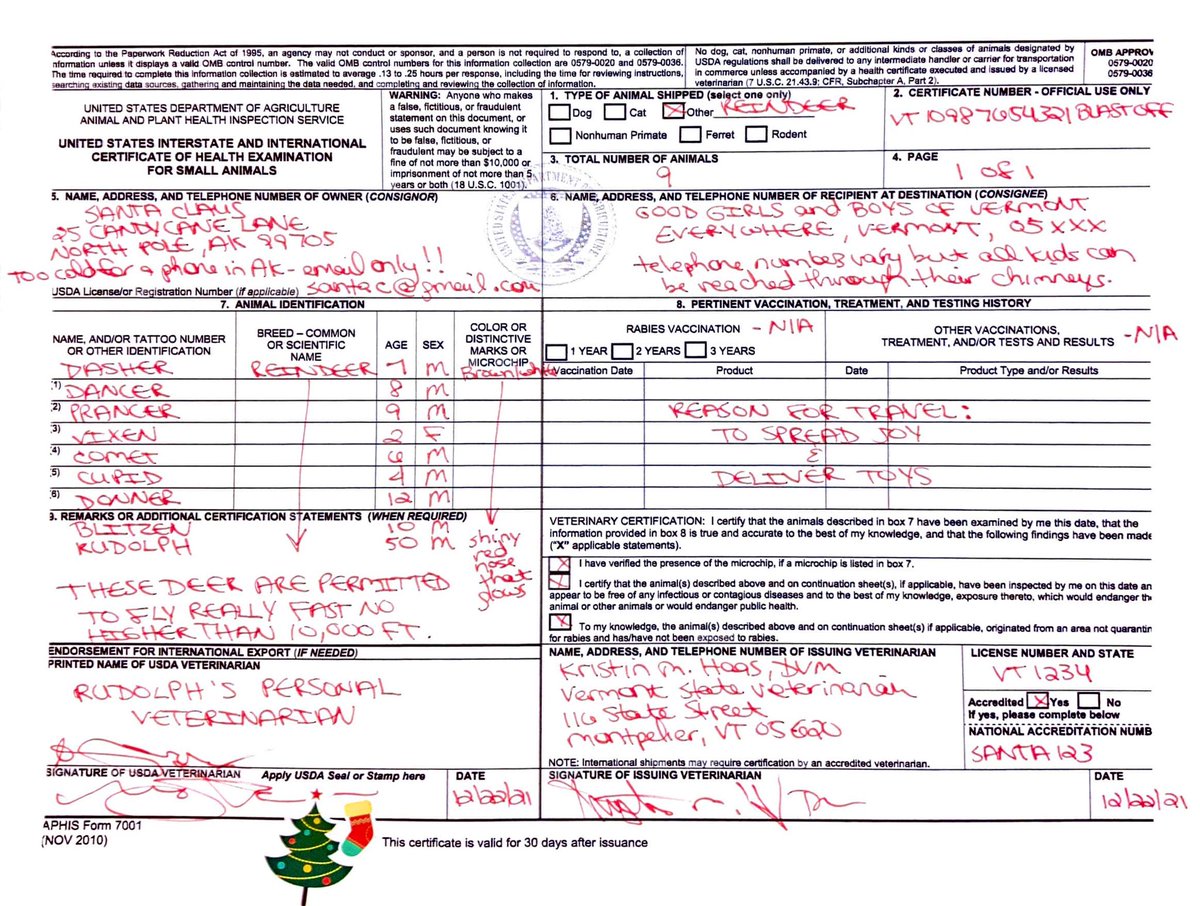 According to the Paperwork Reduction Act of 1995, an agency may not conduct or sponsor, and a person is not required to respond to, a collection of
information unless it displays a valid OMB control number. The valid OMB control numbers for this information collection are 0579-0020 and 0579-0036.
The time required to complete this information collection is estimated to average .13 to .25 hours per response, including the time for reviewing instructions,
searching existing data sources, gathering and maintaining the data needed, and completing and reviewing the collection of information.
No dog, cat, nonhuman primate, or additional kinds or classes of animals designated by
USDA regulations shall be delivered to any intermediate handler or carrier for transportation
in commerce unless accompanied by a health certificate executed and issued by a licensed
veterinarian (7 U.S.C. 21.43.9; CFR, Subchapter A, Part 2).
OMB APPROV
0579-0020
0579-0036
UNITED STATES DEPARTMENT OF AGRICULTURE
ANIMAL AND PLANT HEALTH INSPECTION SERVICE
UNITED STATES INTERSTATE AND INTERNATIONAL
CERTIFICATE OF HEALTH EXAMINATION
FOR SMALL ANIMALS
WARNING: Anyone who makes
a false, fictitious, or fraudulent
statement on this document, or
uses such document knowing it
to be false, fictitious, or
fraudulent may be subject to a
fine of not more than $10,000 or
imprisonment of not more than 5
years or both (18 U.S.C. 1001).
1. TYPE OF ANIMAL SHIPPED (select one only)
Dog Cat Other REINDEER
Nonhuman Primate Ferret Rodent
2. CERTIFICATE NUMBER - OFFICIAL USE ONLY
VT 10987654321 BLASTOFF
3. TOTAL NUMBER OF ANIMALS
9
4. PAGE
1 of 1
5. NAME, ADDRESS, AND TELEPHONE NUMBER OF OWNER (CONSIGNOR)
SANTA CLAUS
25 CANDY CANE LANE
NORTH POLE, AK 99705
TOO cold for a phone in AK - email only!!
USDA License/or Registration Number (if applicable) santac@gmail.com
6. NAME, ADDRESS, AND TELEPHONE NUMBER OF RECIPIENT AT DESTINATION (CONSIGNEE)
GOOD GIRLS and BOYS OF VERMONT
EVERYWHERE, VERMONT, 05XXX
telephone numbers vary but all kids can
be reached through their chimneys.
7. ANIMAL IDENTIFICATION
NAME, AND/OR TATTOO NUMBER
OR OTHER IDENTIFICATION
BREED – COMMON
OR SCIENTIFIC
NAME
AGE
SEX
COLOR OR
DISTINCTIVE
MARKS OR
MICROCHIP
8. PERTINENT VACCINATION, TREATMENT, AND TESTING HISTORY
RABIES VACCINATION - N/A
1 YEAR 2 YEARS 3 YEARS
OTHER VACCINATIONS,
TREATMENT, AND/OR TESTS AND RESULTS - N/A
Vaccination Date Product Date Product Type and/or Results
DASHER REINDEER 7 M Brown/white
1) DANCER 8 M
2) PRANCER 9 M REASON FOR TRAVEL:
3) VIXEN 2 F TO SPREAD JOY
4) COMET 6 M &
5) CUPID 4 M DELIVER TOYS
6) DONNER 12 M
9. REMARKS OR ADDITIONAL CERTIFICATION STATEMENTS (WHEN REQUIRED)
BLITZEN 10 M
RUDOLPH 50 M shiny
red
nose
that
glows
THESE DEER ARE PERMITTED
TO FLY REALLY FAST NO
HIGHER THAN 10,000 FT.
VETERINARY CERTIFICATION: I certify that the animals described in box 7 have been examined by me this date, that the
information provided in box 8 is true and accurate to the best of my knowledge, and that the following findings have been made
("X" applicable statements).
I have verified the presence of the microchip, if a microchip is listed in box 7.
I certify that the animal(s) described above and on continuation sheet(s), if applicable, have been inspected by me on this date an
appear to be free of any infectious or contagious diseases and to the best of my knowledge, exposure thereto, which would endanger th
animal or other animals or would endanger public health.
To my knowledge, the animal(s) described above and on continuation sheet(s) if applicable, originated from an area not quarantin
for rabies and has/have not been exposed to rabies.
ENDORSEMENT FOR INTERNATIONAL EXPORT (IF NEEDED)
PRINTED NAME OF USDA VETERINARIAN
RUDOLPH'S PERSONAL
VETERINARIAN
NAME, ADDRESS, AND TELEPHONE NUMBER OF ISSUING VETERINARIAN
Kristin M. Haas, DVM
Vermont State Veterinarian
116 State Street
Montpelier, VT 05620
NOTE: International shipments may require certification by an accredited veterinarian.
LICENSE NUMBER AND STATE
VT 1234
Accredited Yes No
If yes, please complete below
NATIONAL ACCREDITATION NUMB
SANTA 123
SIGNATURE OF USDA VETERINARIAN Apply USDA Seal or Stamp here
DATE
12/22/21
SIGNATURE OF ISSUING VETERINARIAN
DATE
12/22/21
APHIS Form 7001
(NOV 2010)
This certificate is valid for 30 days after issuance